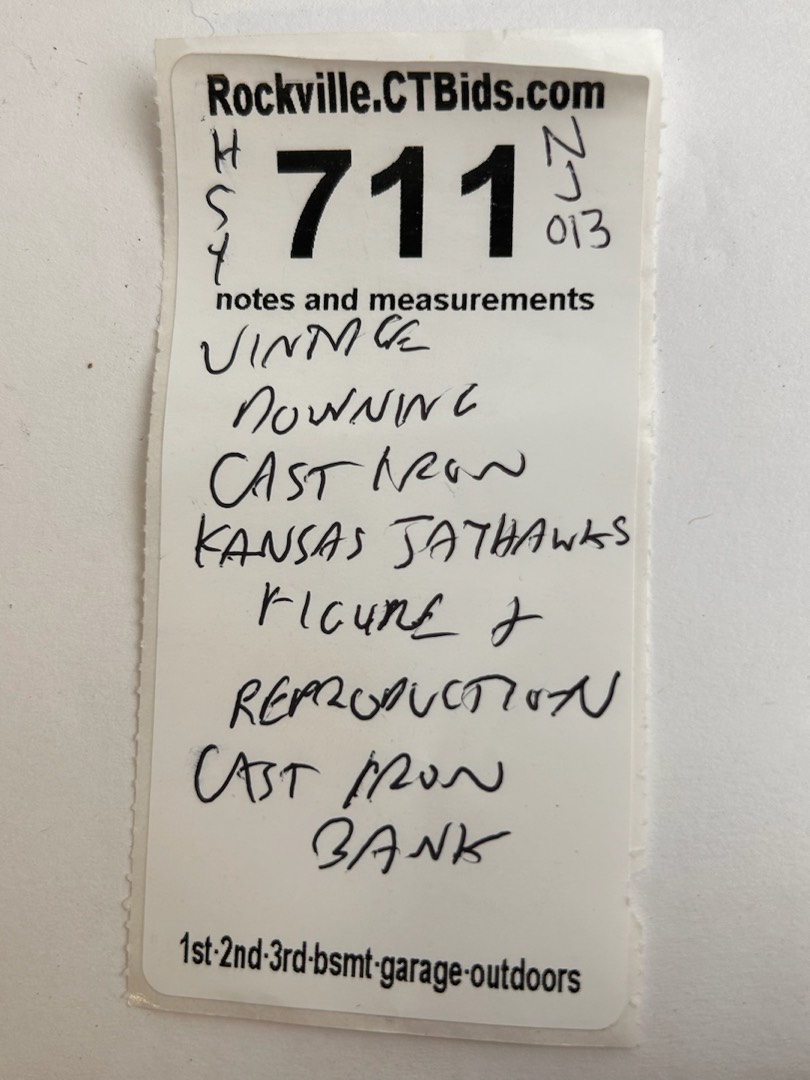 Rockville.CTBids.com
H
S
Y
711
N
J
013
notes and measurements
VINTAGE
DOWNING
CAST IRON
KANSAS JAYHAWKS
FIGURE &
REPRODUCTION
CAST IRON
BANK
1st·2nd·3rd·bsmt·garage·outdoors